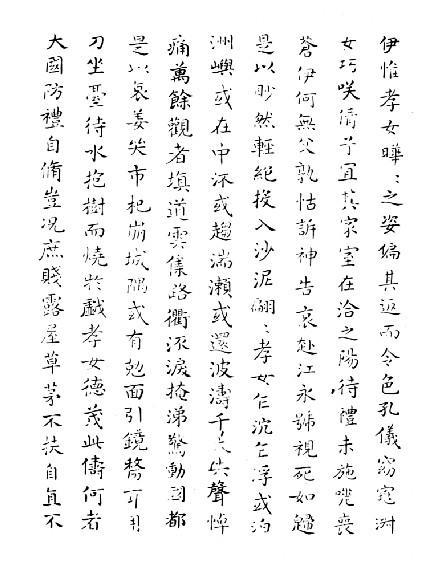 伊惟孝女曄〻之姿偏其返而令色孔儀窈窕淑
女巧咲倩兮宜其家室在洽之陽待禮未施嗟喪
蒼伊何無父孰怙訴神告哀赴江永號視死如歸
是以眇然輕絕投入沙泥翩〻孝女乍沉乍浮或泊
洲嶼或在中流或趨湍瀨或還波濤千夫失聲悼
痛萬餘觀者填道雲集路衢流淚掩涕驚動國都
是以哀姜哭市杞崩城隅或有尅面引鏡剺耳用
刀坐臺待水抱樹而燒於戲孝女德茂此儔何者
大國防禮自脩豈況庶賤露屋草茅不扶自直不